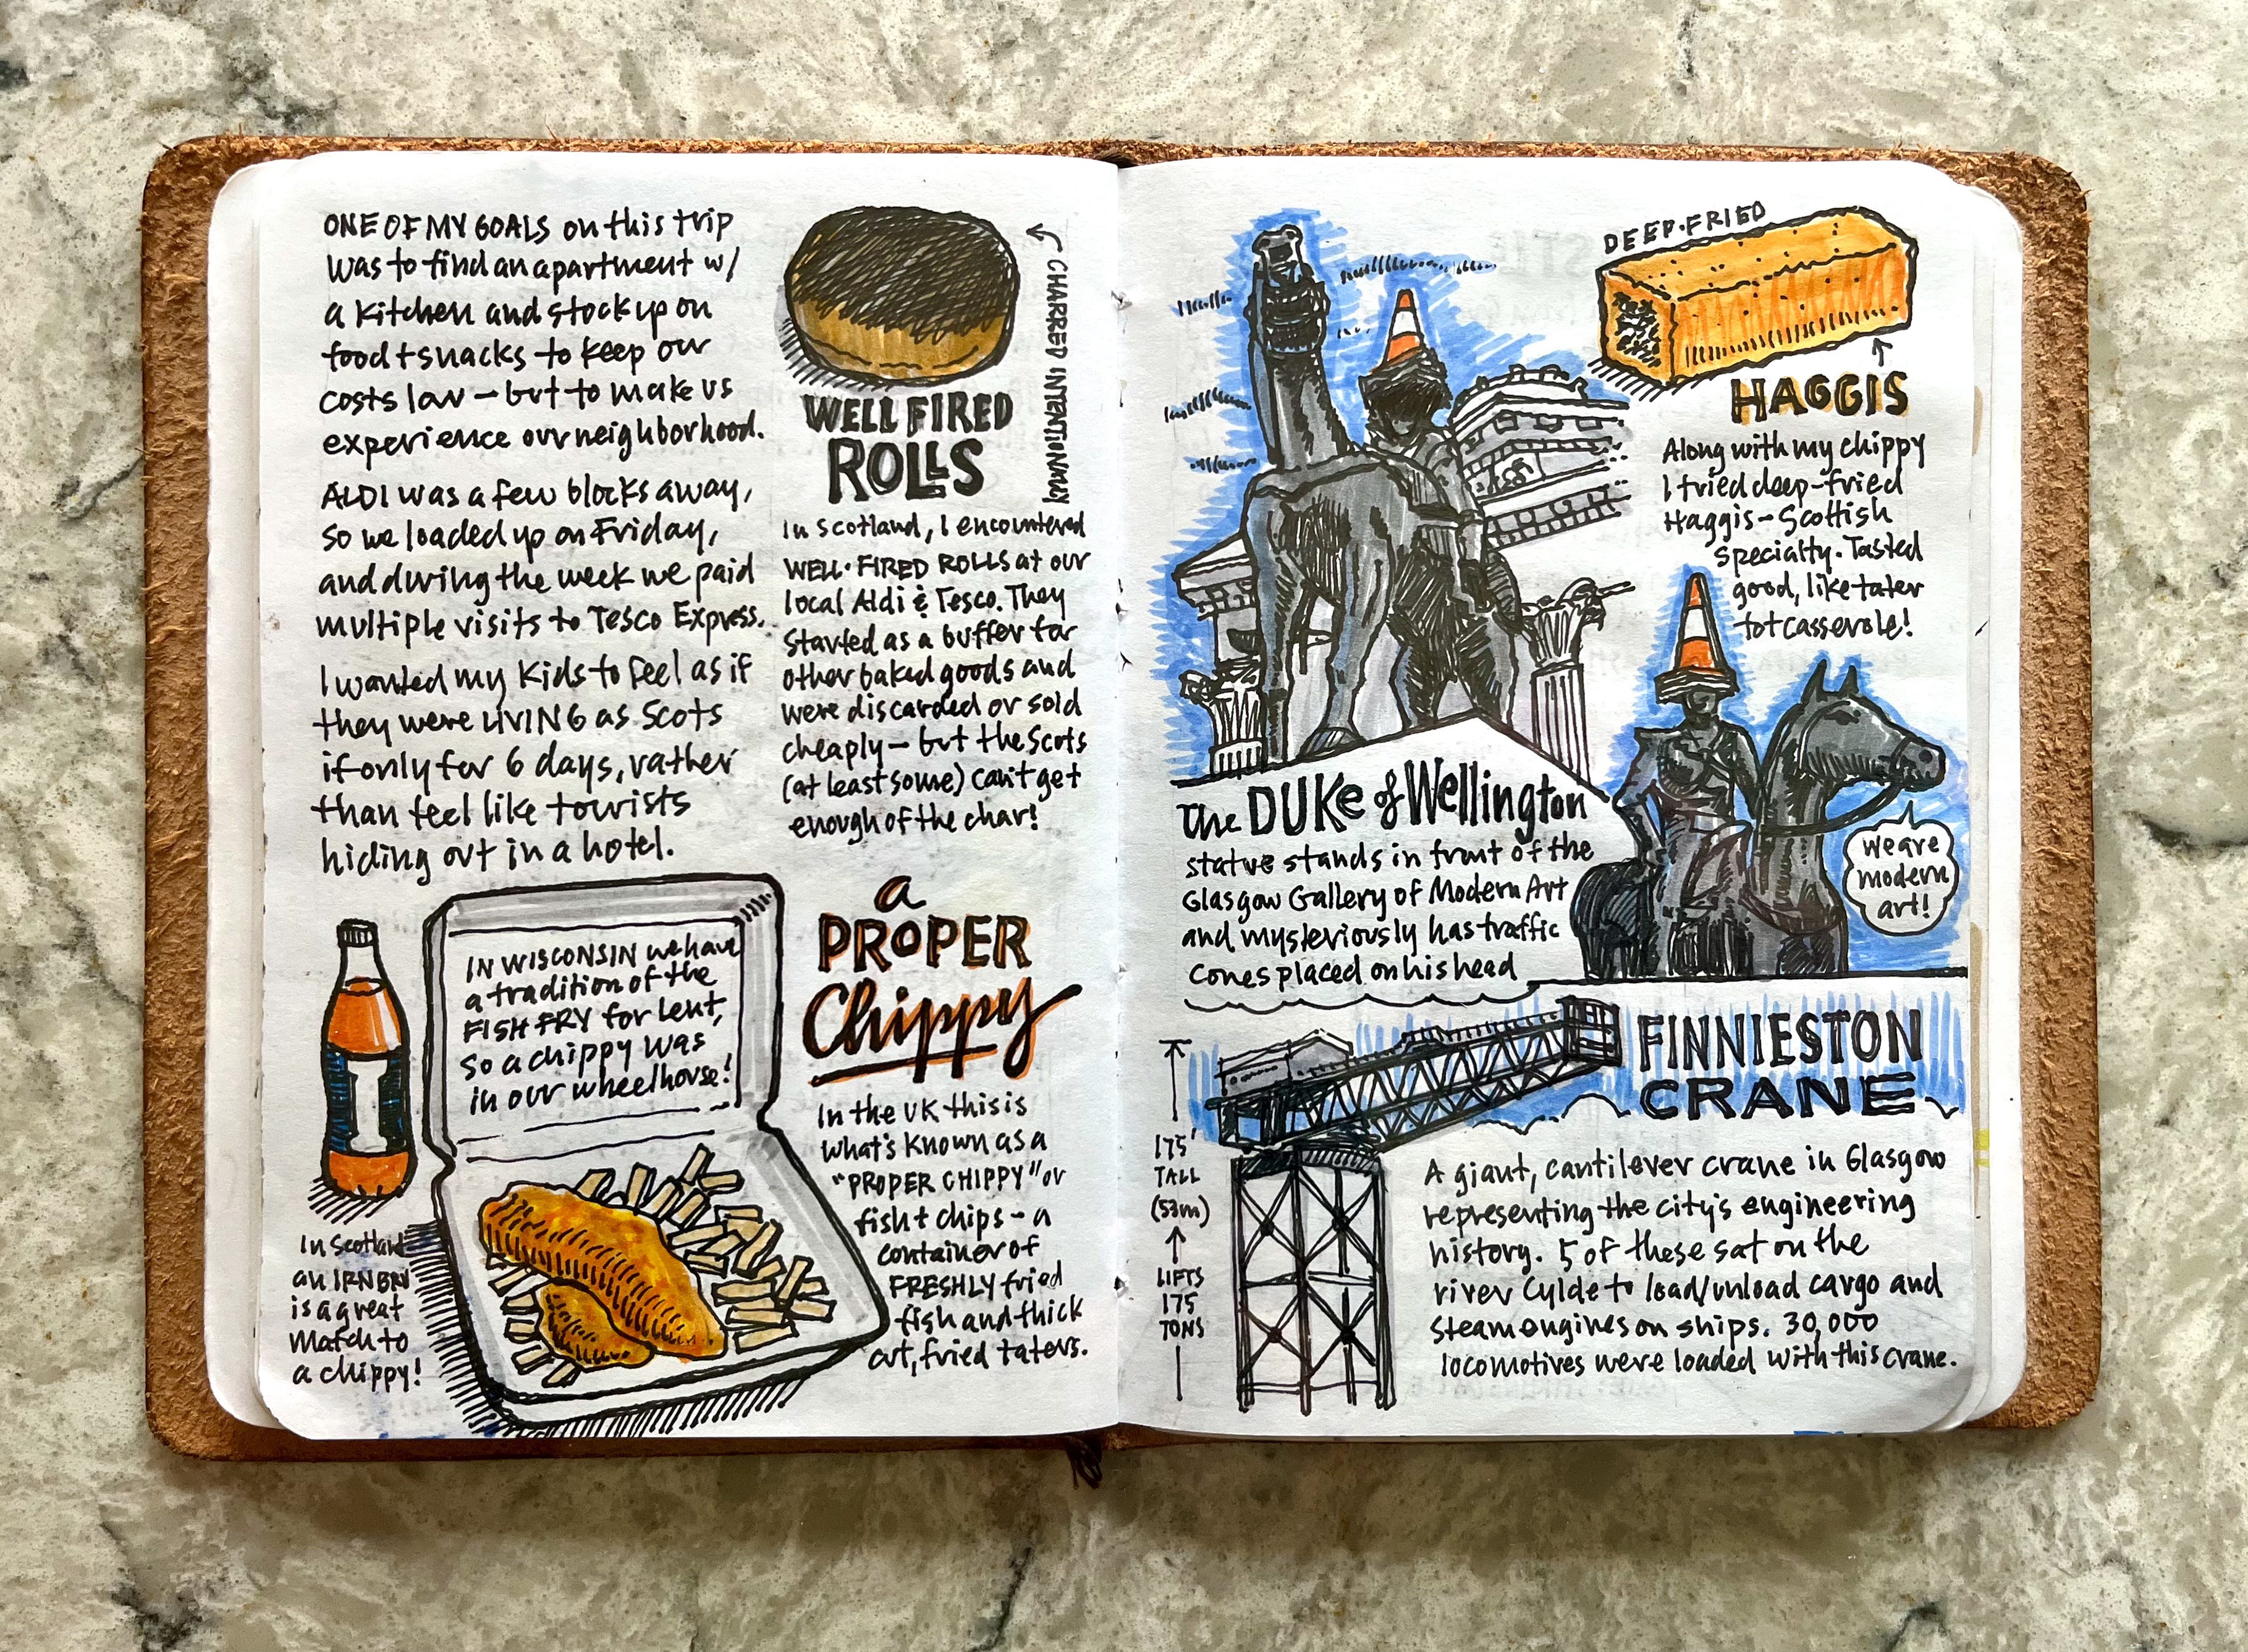 ONE OF MY GOALS on this trip
was to find an apartment w/
a kitchen and stock up on
food + snacks to keep our
costs low – but to make us
experience our neighborhood.
ALDI was a few blocks away,
so we loaded up on Friday,
and during the week we paid
multiple visits to Tesco Express.
I wanted my kids to feel as if
they were LIVING as Scots
if only for 6 days, rather
than feel like tourists
hiding out in a hotel.
CHARRED INTENTIONALLY
WELL FIRED
ROLLS
In Scotland, I encountered
WELL-FIRED ROLLS at our
local Aldi & Tesco. They
started as a buffer for
other baked goods and
were discarded or sold
cheaply – but the Scots
(at least some) can't get
enough of the char!
In Scotland
an IRN BRU
is a great
match to
a chippy!
IN WISCONSIN we have
a tradition of the
FISH FRY for Lent,
so a chippy was
in our wheelhouse!
a
PROPER
Chippy
In the UK this is
what's known as a
"PROPER CHIPPY" or
fish + chips – a
container of
FRESHLY fried
fish and thick
cut, fried taters.
DEEP-FRIED
HAGGIS
Along with my chippy
I tried deep-fried
Haggis – Scottish
specialty. Tasted
good, like tater
tot casserole!
The DUKE of Wellington
statue stands in front of the
Glasgow Gallery of Modern Art
and mysteriously has traffic
cones placed on his head
we are
modern
art!
FINNIESTON
CRANE
175'
TALL
(53m)
LIFTS
175
TONS
A giant, cantilever crane in Glasgow
representing the city's engineering
history. 5 of these sat on the
river Cylde to load/unload cargo and
steam engines on ships. 30,000
locomotives were loaded with this crane.